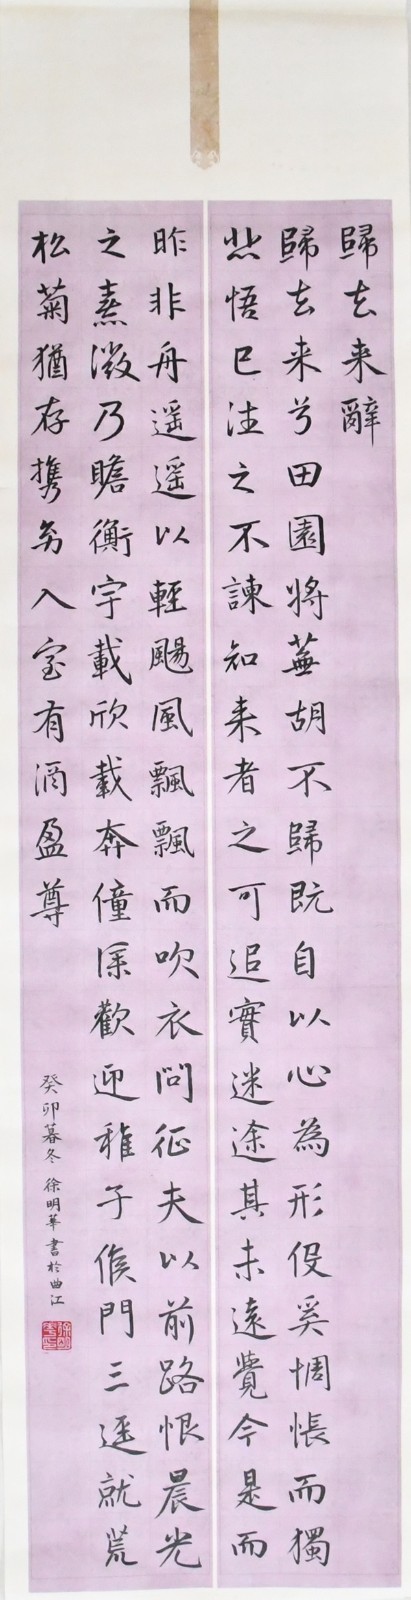 歸去来辭
歸去来兮田園將蕪胡不歸既自以心為形役奚惆悵而獨
悲悟已往之不諫知来者之可追實迷途其未遠覺今是而
昨非舟遥遥以輕颺風飄飄而吹衣問征夫以前路恨晨光
之熹微乃瞻衡宇載欣載奔僮僕歡迎稚子候門三逕就荒
松菊猶存携幼入室有酒盈尊
癸卯暮冬徐明華書於曲江